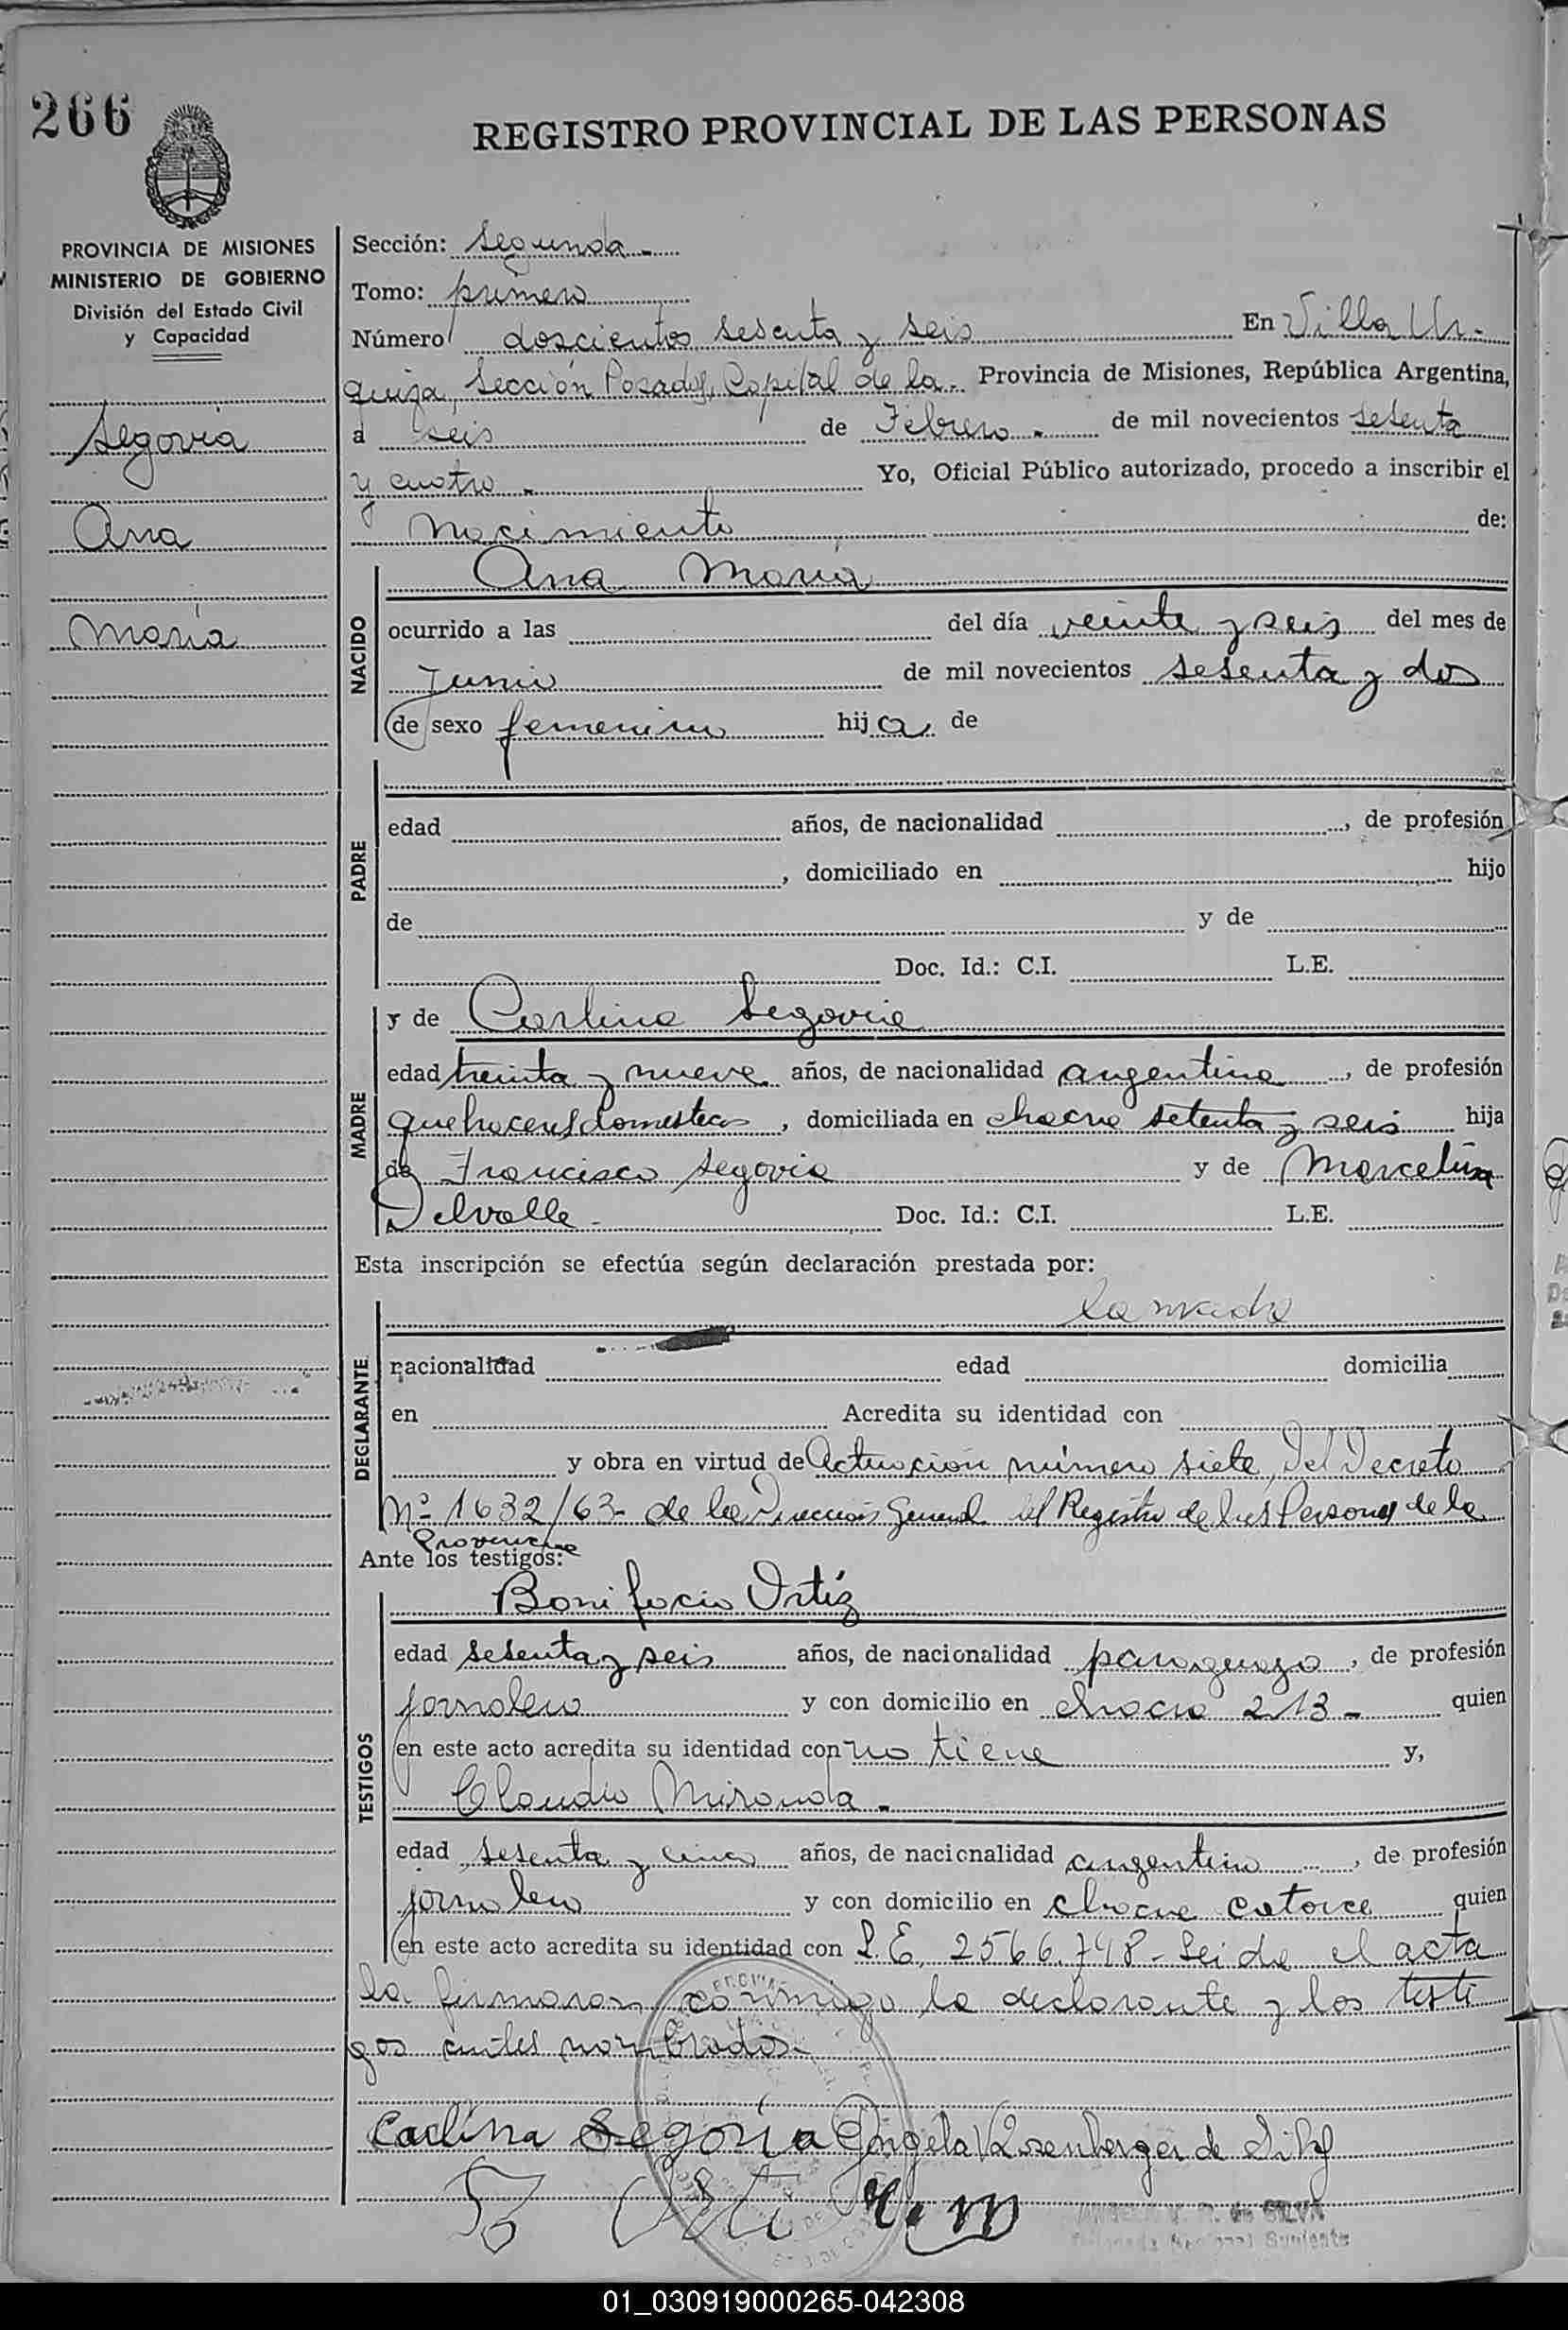 266
REGISTRO PROVINCIAL DE LAS PERSONAS
PROVINCIA DE MISIONES
MINISTERIO DE GOBIERNO
División del Estado Civil
y Capacidad
Segovia
Ana
María
Sección: Segunda -
Tomo: primero
Número doscientos sesenta y seis En Villa Ur-
quiza, Sección Posadas, Capital de la - Provincia de Misiones, República Argentina,
a seis de Febrero - de mil novecientos setenta
y cuatro - Yo, Oficial Público autorizado, procedo a inscribir el
nacimiento de:
NACIDO
Ana María
ocurrido a las del día veinte y seis del mes de
Junio de mil novecientos sesenta y dos
de sexo femenino hija de
PADRE
edad años, de nacionalidad , de profesión
, domiciliado en hijo
de y de
Doc. Id.: C.I. L.E.
MADRE
y de Carlina Segovia
edad treinta y nueve años, de nacionalidad argentina , de profesión
quehaceres domesticos , domiciliada en chacra setenta y seis hija
de Francisco Segovia y de Marcelina
Delvalle - Doc. Id.: C.I. L.E.
Esta inscripción se efectúa según declaración prestada por:
DECLARANTE
la madre
nacionalidad edad domicilia
en Acredita su identidad con
y obra en virtud de Actuación número siete, Del Decreto
Nº 1632/63- de la Dirección General del Registro de las Personas de la
Provincia
Ante los testigos:
TESTIGOS
Bonifacio Ortíz
edad sesenta y seis años, de nacionalidad paraguayo , de profesión
jornalero y con domicilio en chacra 213 - quien
en este acto acredita su identidad con no tiene y,
Claudio Miranda -
edad sesenta y cinco años, de nacionalidad argentino , de profesión
jornalero y con domicilio en chacra catorce quien
en este acto acredita su identidad con L.E. 2566.748 - Leida el acta
la firmaron conmigo la declarante y los testi
gos antes nombrados -
Carlina Segovia Angela V Rosenberger de Silva
ANGELA V. R. de SILVA
Suplente
01_030919000265-042308